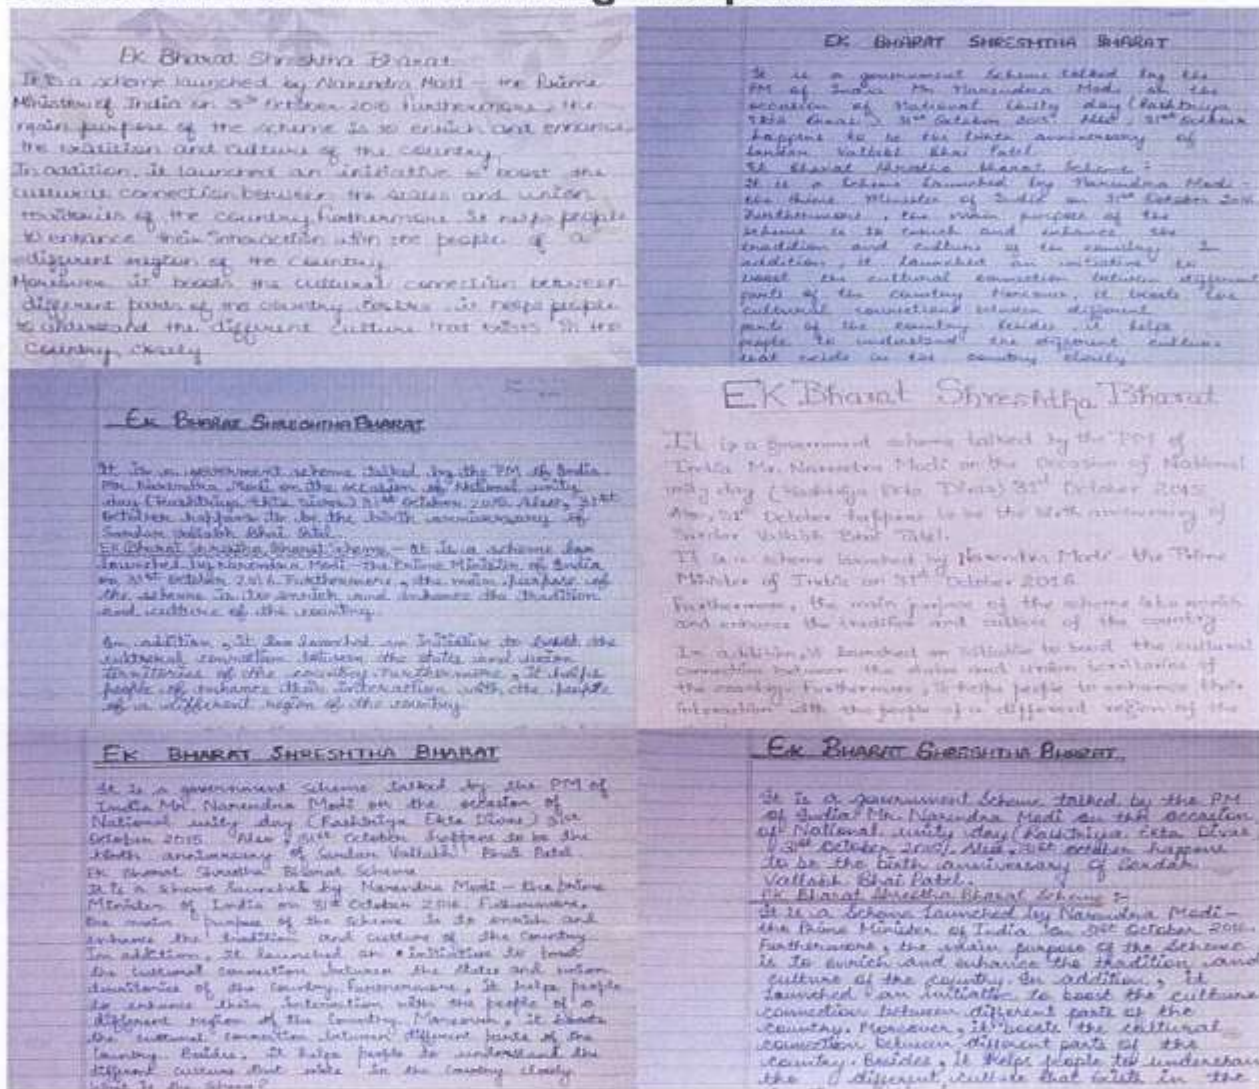 Ek Bharat Shreshtha Bharat
It is a scheme launched by Narendra Modi - the Prime
Minister of India on October Furthermore, the
main purpose of the scheme is to enrich and enhance
the tradition and culture of the country
In addition, it launched an initiative to boost the
cultural connection between the states and union
territories of the country. Furthermore. It helps people
to enhance their interaction with the people of a
different region of the country
Moreover it boosts the cultural connection between
different parts of the country it helps people
to understand the different culture that exists in the
country, closely
EK BHARAT SHRESHTHA BHARAT
It is a government scheme talked by the
PM of India Mr Narendra Modi on the
occasion of National Unity day (Rashtriya
31st October Also, 31st October
happens to be the birth anniversary of
Vallabh Bhai Patel
Bharat Bharat Scheme :-
It is a scheme launched by Narendra Modi -
the Prime Minister of India on 31st October
Furthermore, the main purpose of the
scheme is to enrich and enhance the
tradition and culture of the country In
addition, it launched an initiative to
boost the cultural connection between different
parts of the country Moreover, it boosts the
cultural connections between different
parts of the country Besides it helps
people to understand the different culture
that in the country closely
EK BHARAT SHRESHTHA BHARAT
It is a government scheme talked by the PM of India
Mr. Narendra Modi on the occasion of National unity
day (Rashtriya 31st October Also, 31st
October happens to be the birth anniversary of
Vallabh Bhai Patel.
Ek Bharat Bharat Scheme - It is a scheme
launched by Narendra Modi - the Prime Minister of India
on 31st October 2016. Furthermore, the main purpose of
the scheme is to enrich and enhance the tradition
and culture of the country.
In addition, it launched an initiative to boost the
cultural connection between the states and union
territories of the country. Furthermore, it helps
people of enhance their interaction with the people
of a different region of the country
EK Bharat Shreshtha Bharat
It is a Government scheme talked by the PM of
India Mr. Narendra Modi on the Occasion of National
unity day (Rashtriya Ekta Divas) 31st October 2015
Also, 31st October happens to be the birth anniversary of
Sardar Vallabh Bhai Patel.
It is a scheme launched by Narendra Modi - the Prime
Minister of India on 31st October 2016
Furthermore, the main purpose of the scheme enrich
and enhance the tradition and culture of the country
In addition, it launched an initiative to boost the cultural
connection between the states and union territories of
the country. Furthermore, it helps people to enhance their
interaction with the people of a different region of the
EK BHARAT SHRESHTHA BHARAT
It is a government scheme talked by the PM of
India Mr. Narendra Modi on the occasion of
National unity day (Rashtriya Ekta Divas) 31st
October 2015 Also, 31st October happens to be the
anniversary of Vallabh Bhai Patel
Ek Bharat Bharat Scheme
It is a scheme launched by Narendra Modi - the prime
Minister of India on 31st October 2016.
the main purpose of the scheme is to enrich and
enhance the tradition and culture of the country
In addition, it launched an initiative to boost
the cultural connection between the states and union
territories of the country. Furthermore, it helps people
to enhance their interaction with the people of a
different region of the country. Moreover, it boosts
the cultural connection between different parts of the
country Besides, it helps people to understand the
different culture that in the country closely
What is the
EK BHARAT SHRESHTHA BHARAT
It is a government scheme talked by the PM
of India Mr. Narendra Modi on the occasion
of National unity day (Rashtriya Ekta Divas
) 31st October Also, 31st October happens
to be the birth anniversary of
Vallabh Bhai Patel.
Ek Bharat Shrestha Bharat Scheme :-
It is a Scheme launched by Narendra Modi -
the Prime Minister of India on October
Furthermore, the main purpose of the scheme
is to enrich and enhance the tradition and
culture of the country. In addition, it
launched an initiative to boost the
connection between different parts of the
country. Moreover, it boosts the cultural
connection between different parts of the
country. Besides, it helps people to
the different culture that exists in the